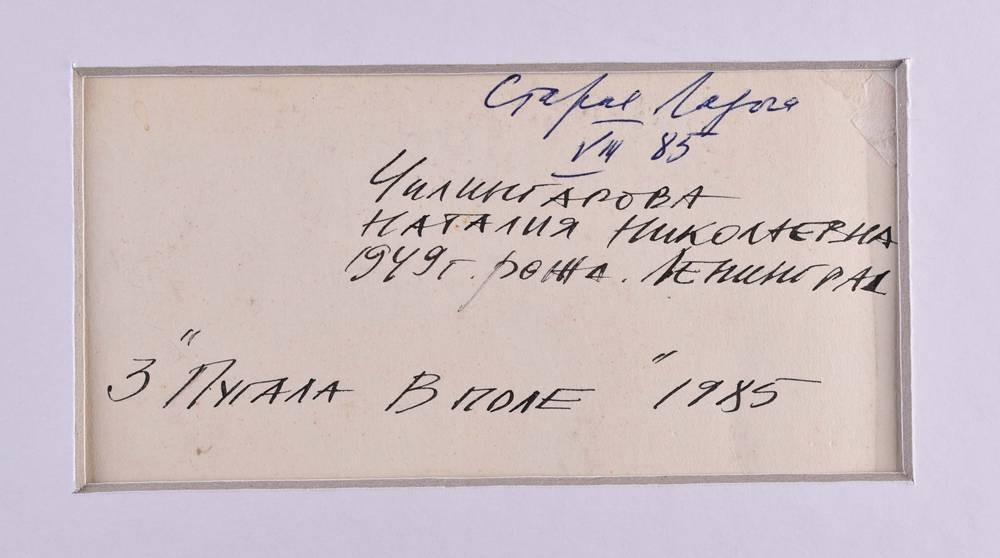 Старая Ладога
VIII 85
Чилингарова
Наталия Николаевна
1949 г. рожд. Ленинград
3 "Пугала в поле" 1985